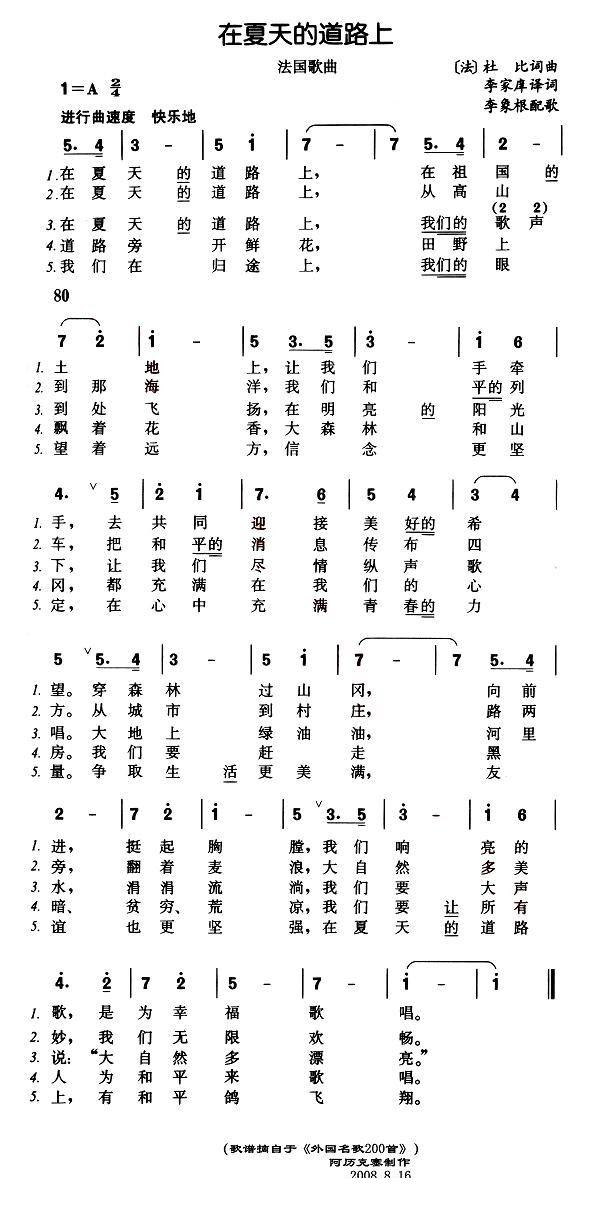 在夏天的道路上
法国歌曲
〔法〕杜 比词曲
1=A 2/4
李家庠译词
进行曲速度 快乐地
李象根配歌
5. 4 | 3 - | 5 i | 7 - | 7 5. 4 | 2 -
1.在夏天的道路上, 在祖国的
2.在夏天的道路上, 从高山
(2 2)
3.在夏天的道路上, 我们的歌声
4.道路旁开鲜花, 田野上
5.我们在归途上, 我们的眼
80
7 2 | i - | 5 3. 5 | 3 - | i 6
1.土地上,让我们手牵
2.到那海洋,我们和平的列
3.到处飞扬,在明亮的阳光
4.飘着花香,大森林和山
5.望着远方,信念更坚
4. ∨ 5 | 2 i | 7. 6 | 5 4 | 3 4
1.手,去共同迎接美好的希
2.车,把和平的消息传布四
3.下,让我们尽情纵声歌
4.冈,都充满在我们的心
5.定,在心中充满青春的力
5 ∨ 5. 4 | 3 - | 5 i | 7 - | 7 5. 4
1.望。穿森林过山冈, 向前
2.方。从城市到村庄, 路两
3.唱。大地上绿油油, 河里
4.房。我们要赶走黑
5.量。争取生活更美满, 友
2 - | 7 2 | i - | 5 ∨ 3. 5 | 3 - | i 6
1.进,挺起胸膛,我们响亮的
2.旁,翻着麦浪,大自然多美
3.水,涓涓流淌,我们要大声
4.暗、贫穷、荒凉,我们要让所有
5.谊也更坚强,在夏天的道路
4. 2 | 7 2 | 5 - | 7 - | i - | i ‖
1.歌,是为幸福歌唱。
2.妙,我们无限欢畅。
3.说:“大自然多漂亮。”
4.人为和平来歌唱。
5.上,有和平鸽飞翔。
(歌谱摘自于《外国名歌200首》)
阿历克塞制作
2008.8.16